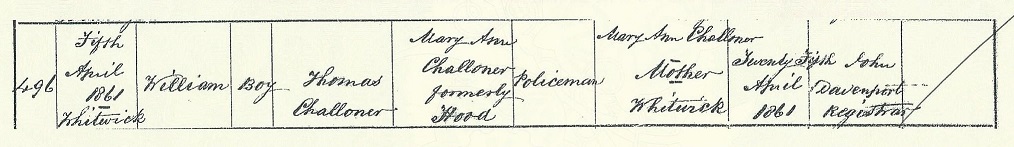 496
Fifth
April
1861
Whitwick
William
Boy
Thomas
Challoner
Mary Ann
Challoner
formerly
Hood
Policeman
Mary Ann Challoner
Mother
Whitwick
Twenty Fifth
April
1861
John
Davenport
Registrar